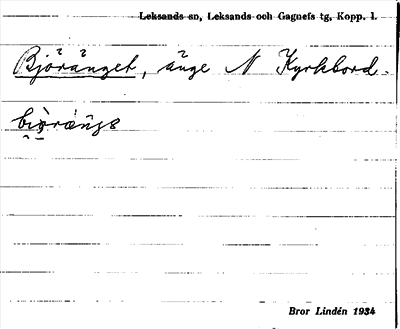 Leksands sn, Leksands och Gagnefs tg, Kopp. l.
Björänget, änge N Kyrkbord.
Bror Lindén 1934